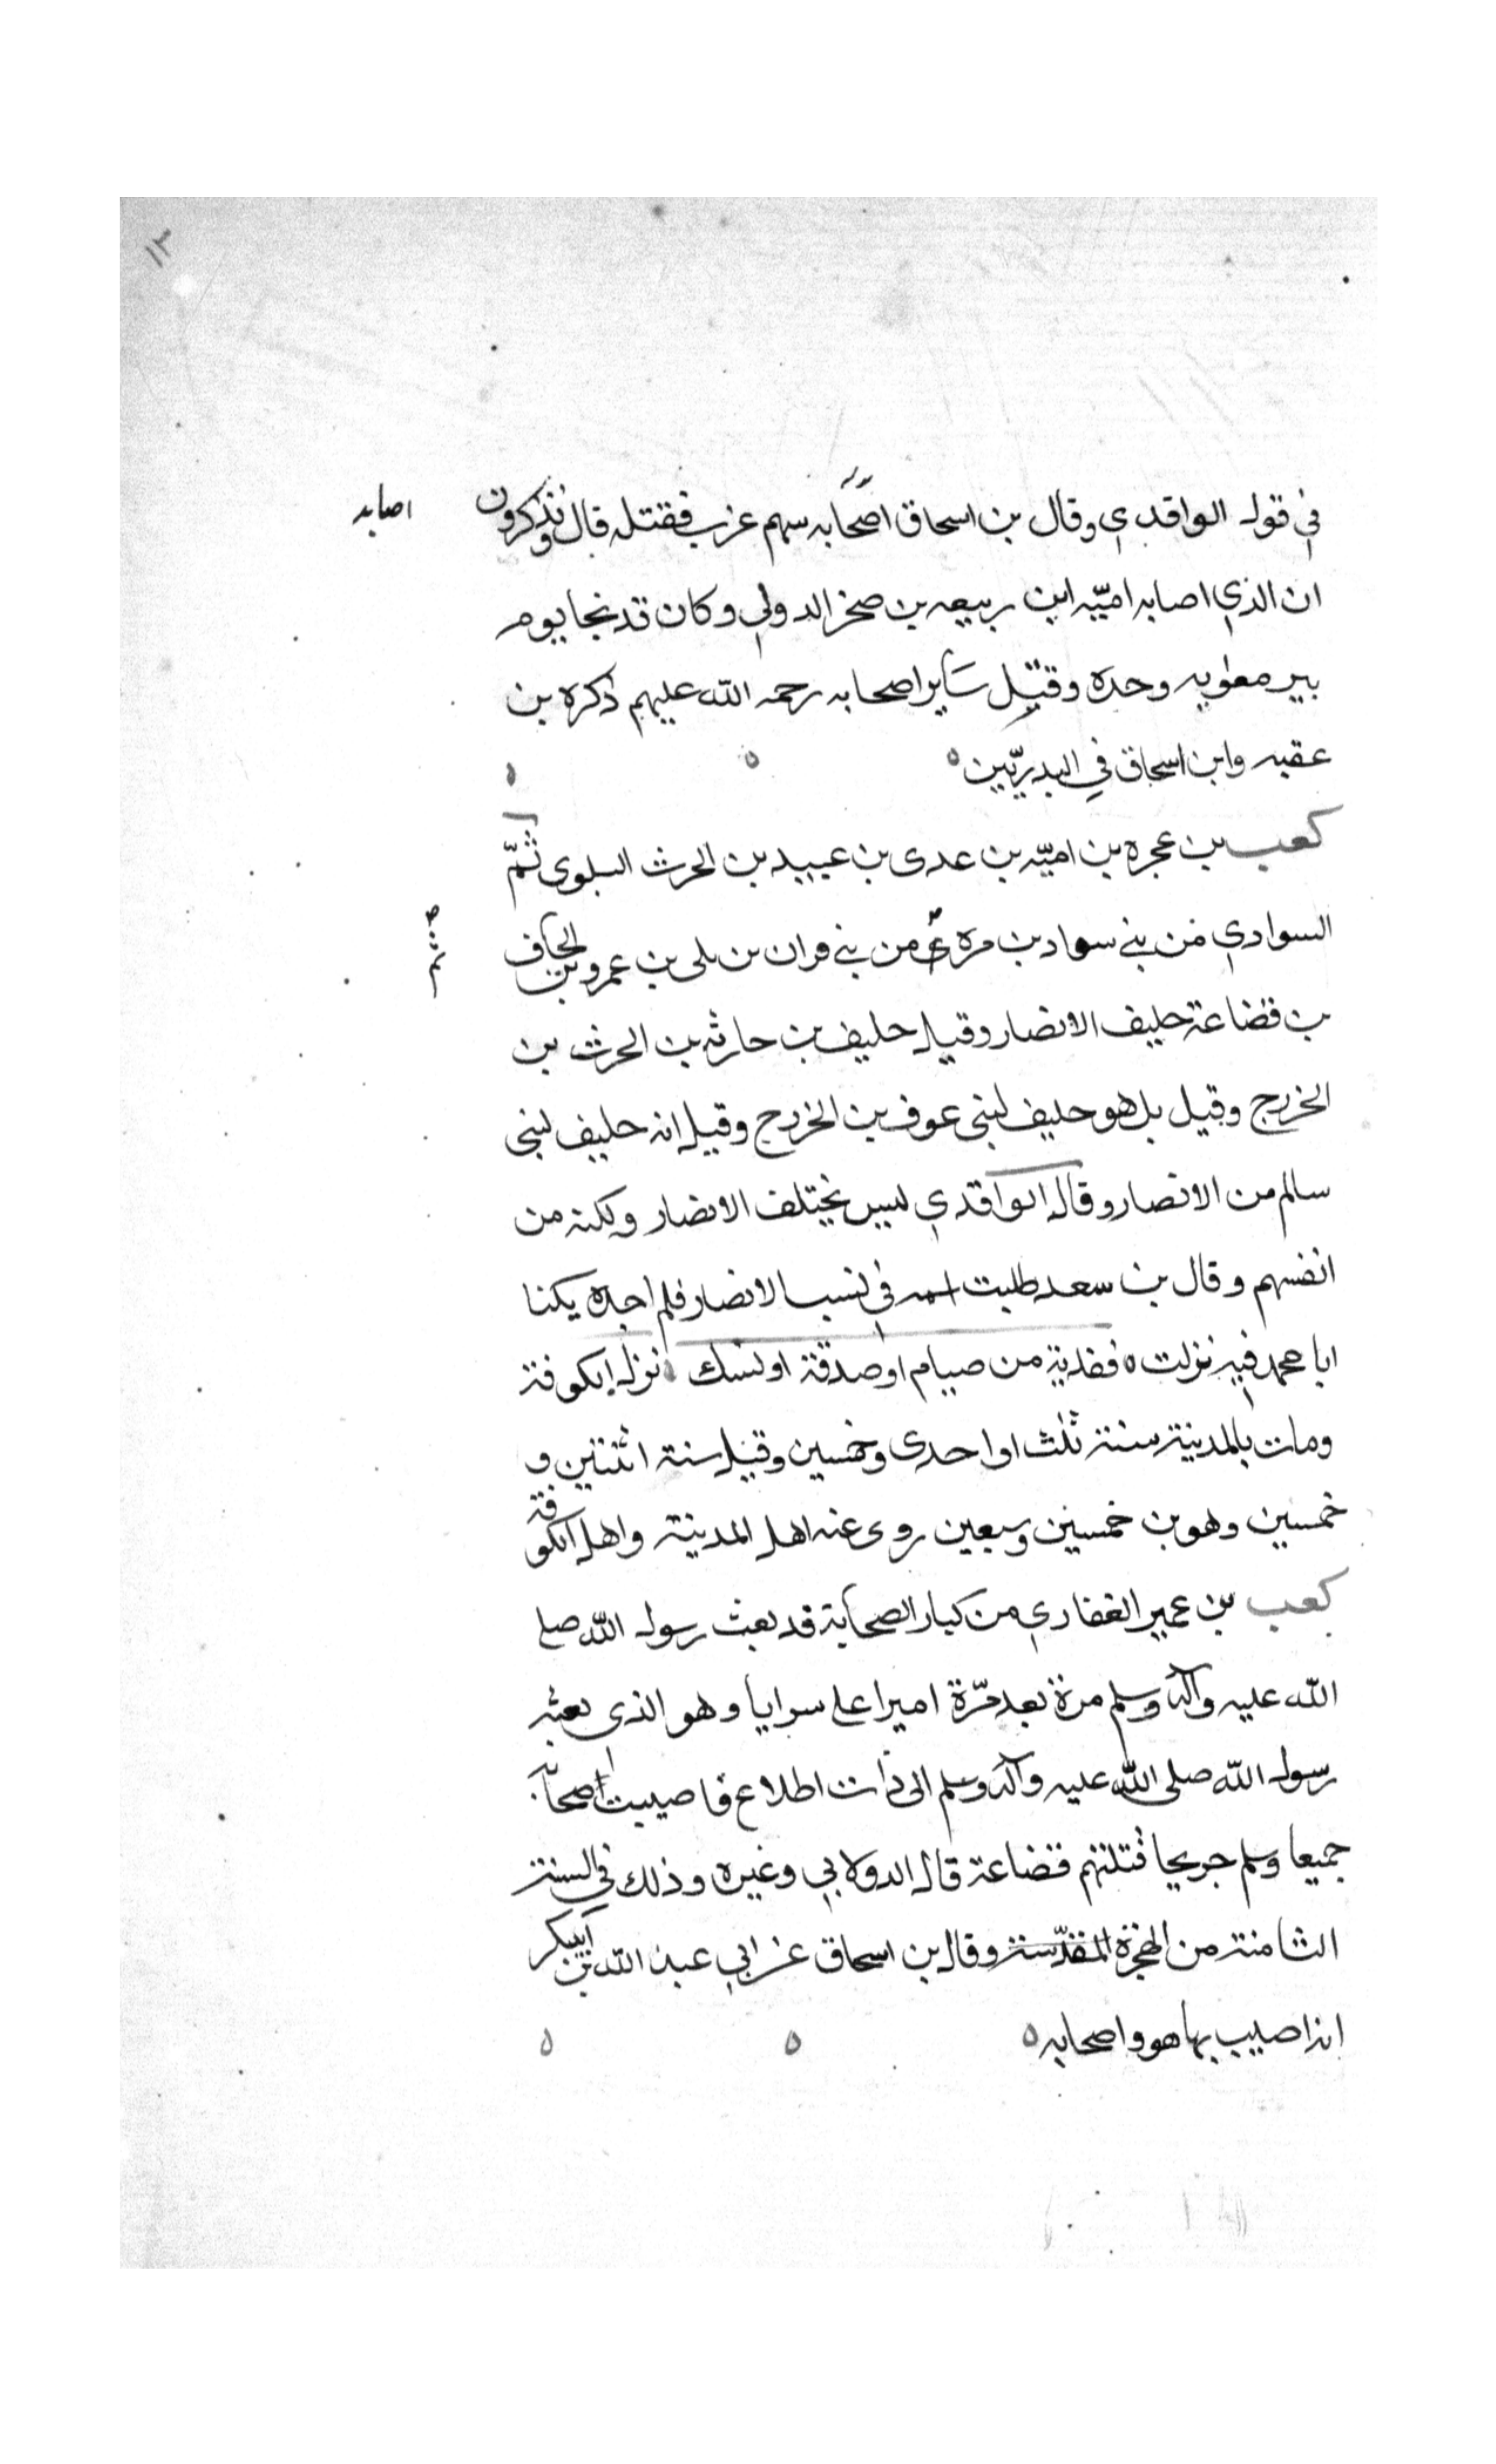 ١٣
في قول الواقدي وقال بن اسحاق اصحابه سهم غرب فقتله قال ويذكرون
اصابه
ان الذي اصابه اميّه ابن ربيعه بن صخر الدولي وكان قد نجا يوم
بير معويه وحده وقتيل ساير اصحابه رحمه الله عليهم ذكره بن
عقبه وابن اسحاق في البدريّين ٥
كعب بن عجره بن اميّه بن عدى بن عبيد بن الحرث البلوى ثمّ
السوادي من بني سواد بن مره من بني فران بن بلى بن عمرو بن الحاف
ثم
بن قضاعة حليف الانصار وقيل حليف بن حارثه بن الحرث بن
الخزرج وقيل بل هو حليف لبنى عوف بن الخزرج وقيل انه حليف لبنى
سالم من الانصار وقال الواقدي ليس بختلف الانصار ولكنه من
انفسهم وقال بن سعد طلبت اسمه في نسب الانصار فلم اجده يكنا
ابا محمد فيه نزلت ٥ ففدية من صيام او صدقة او نسك ٥ نزل الكوفة
ومات بالمدينة سنة ثلث او احدى وخمسين وقيل سنة اثنتين و
خمسين وهو بن خمسين وسبعين روى عنه اهل المدينة واهل الكوفة
كعب بن عمير الغفاري من كبار الصحابة قد بعث رسول الله صلى
الله عليه وآله وسلم مرة بعد مرّة اميرا على سرايا وهو الذي بعثه
رسول الله صلى الله عليه وآله وسلم الى ذات اطلاع فاصيبت اصحابه
جميعا وسلم جريحا قتلتهم قضاعة قال الدولابي وغيره وذلك في السنة
الثامنة من الهجرة المقدّسة وقال بن اسحاق عن ابي عبد الله بن ابيبكر
انه اصيب بها هو واصحابه ٥